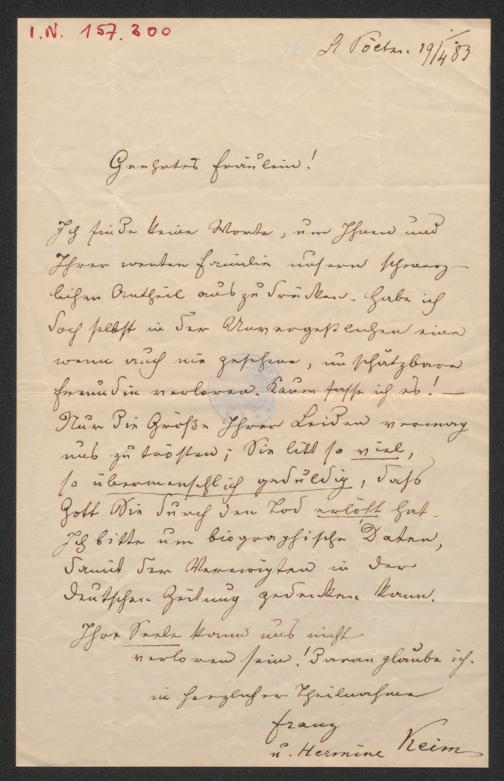 I.N. 157.300
St Pölten. 19/4 83
Geehrtes Fräulein!
Ich finde keine Worte, um Ihnen und
Ihrer werten Familie unsern schmerz-
lichen Antheil auszudrücken. Habe ich
doch selbst in der Unvergeßlichen eine
wenn auch nie gesehene, unschätzbare
Freundin verloren. Kaum fasse ich es! —
Nur die Größe Ihrer Leiden vermag
uns zu trösten; Sie litt so viel,
so übermenschlich geduldig, dass
Gott Sie durch den Tod erlöst hat.
Ich bitte um biographische Daten,
damit der Verewigten in der
deutschen Zeitung gedenken kann.
Ihre Seele kann uns nicht
verloren sein! Daran glaube ich.
in herzlicher Theilnahme
Franz
u. Hermine Keim